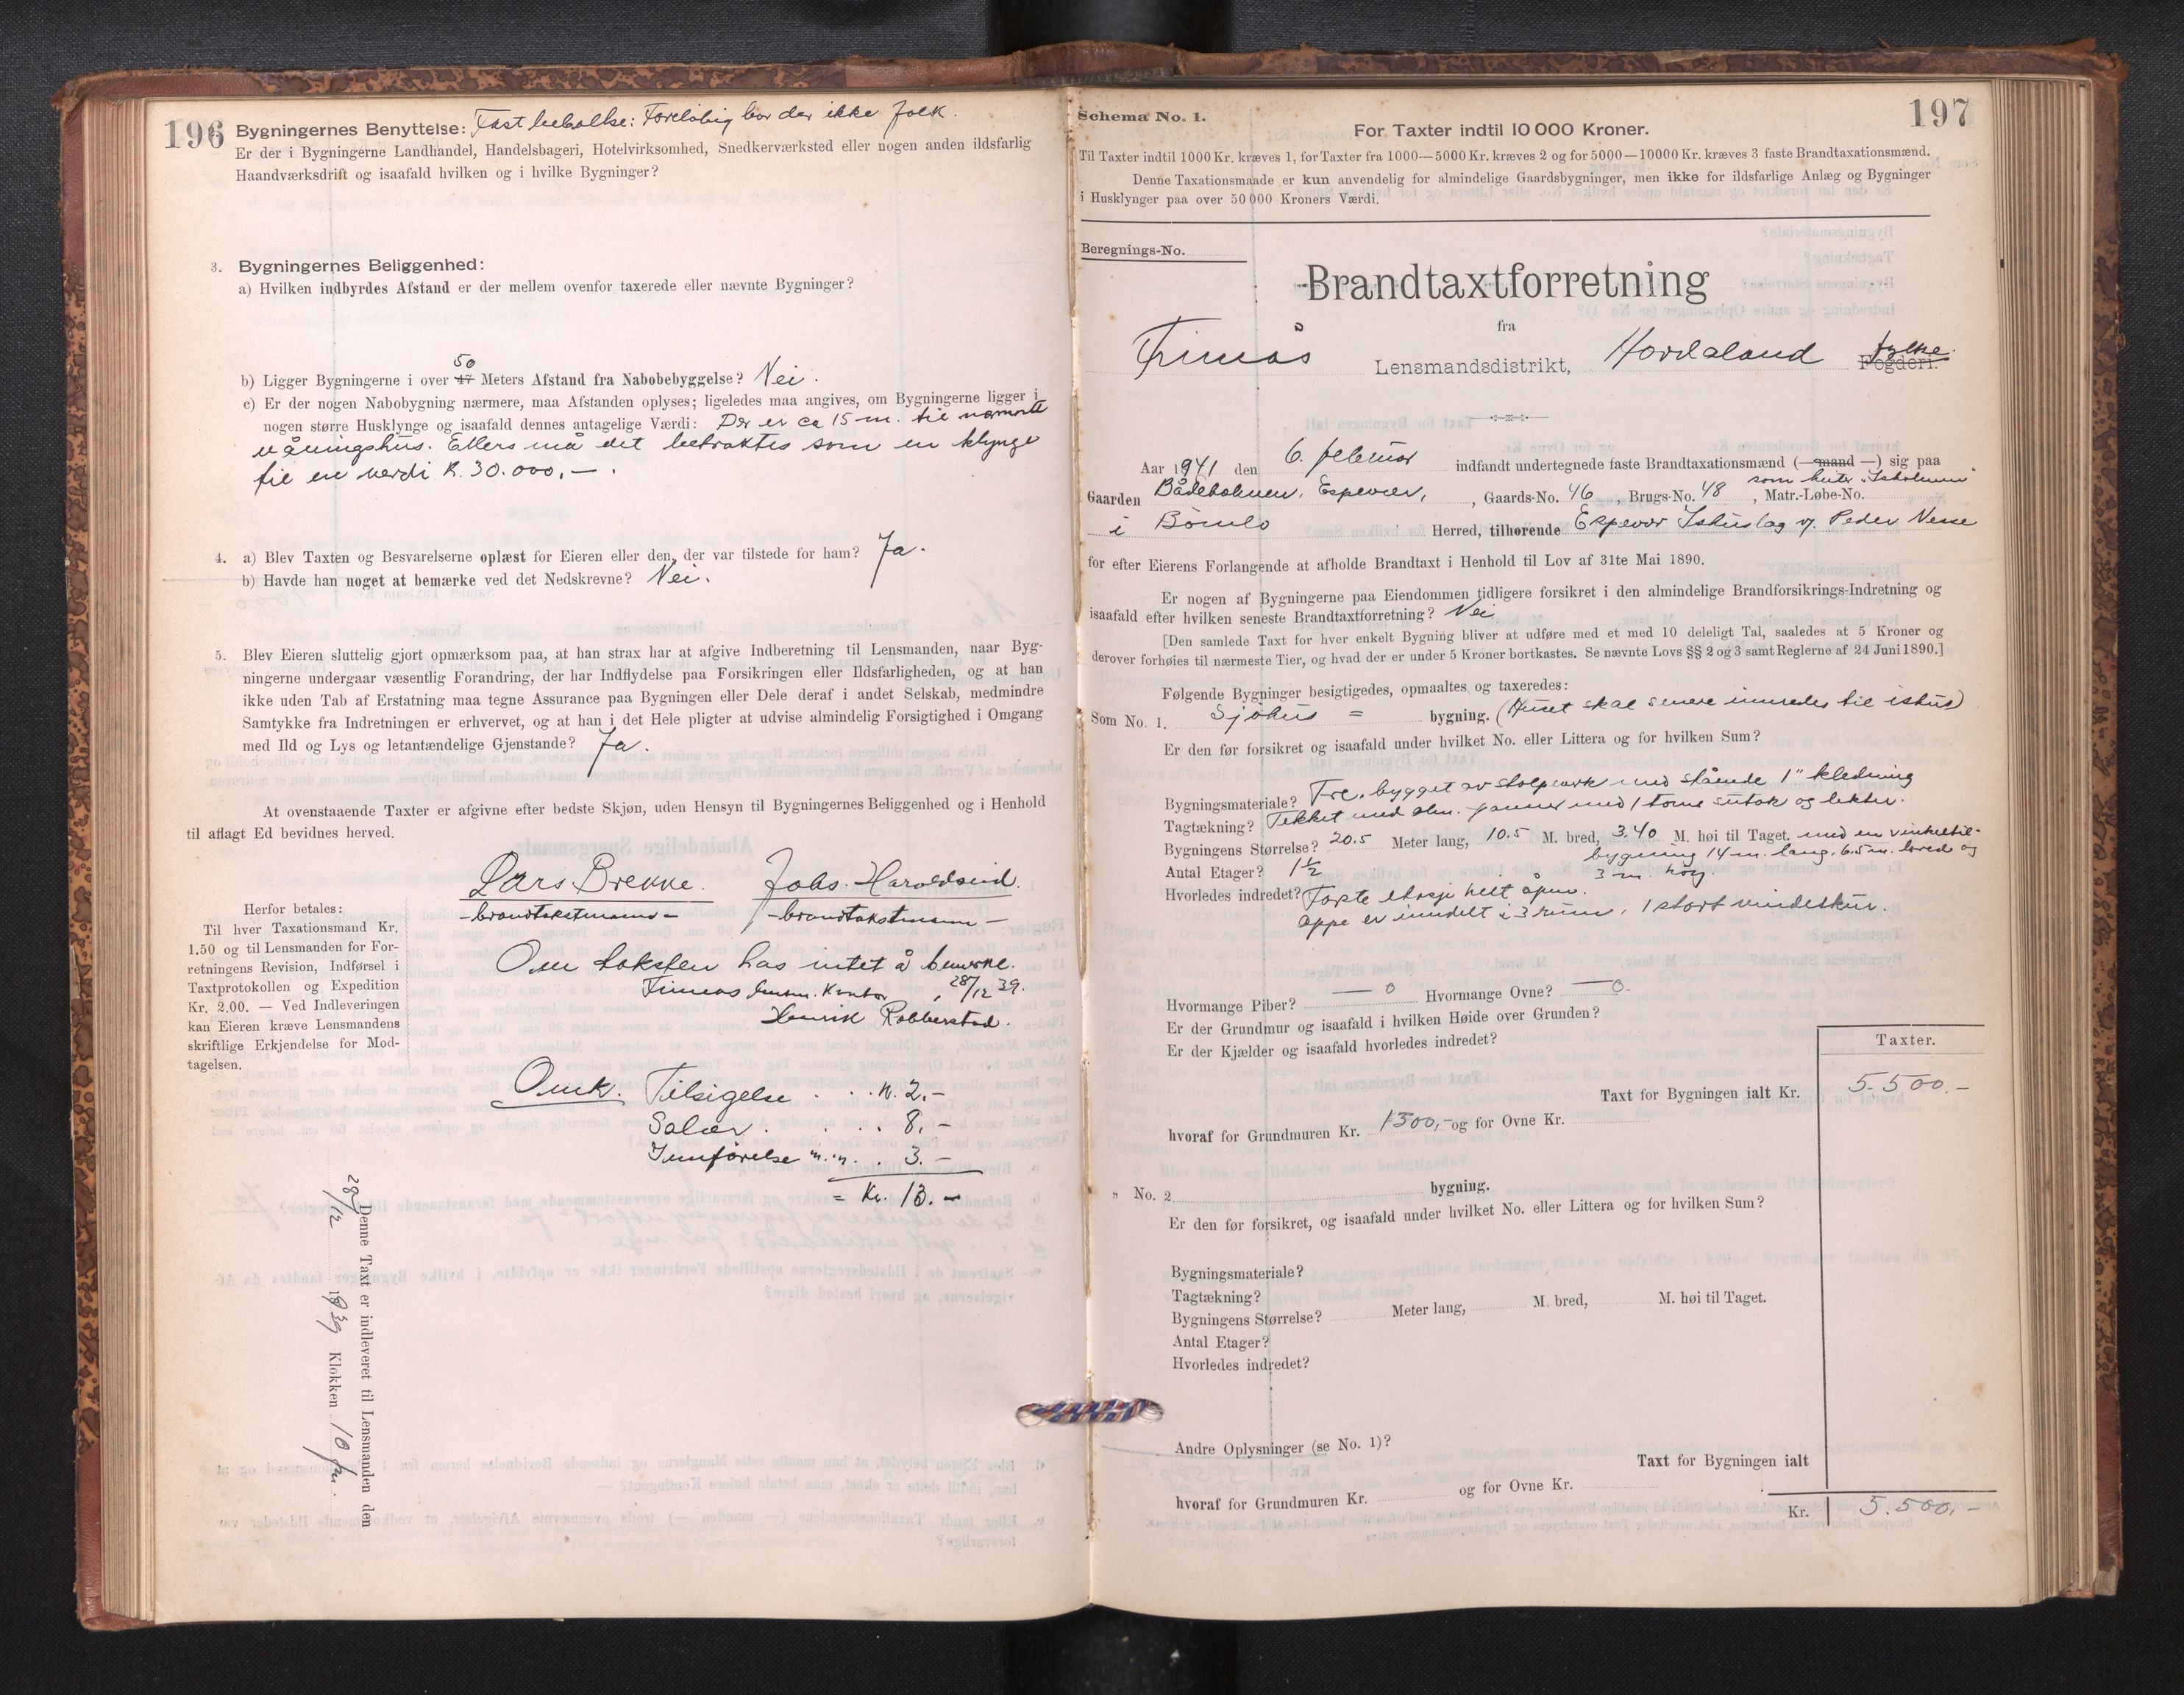 196
Bygningernes Benyttelse: Fast bebolke: Foreløbig bor der ikke folk.
Er der i Bygningerne Landhandel, Handelsbageri, Hotelvirksomhed, Snedkerværksted eller nogen anden ildsfarlig
Haandværksdrift og isaafald hvilken og i hvilke Bygninger?
3. Bygningernes Beliggenhed:
a) Hvilken indbyrdes Afstand er der mellem ovenfor taxerede eller nævnte Bygninger?
50
b) Ligger Bygningerne i over 47 Meters Afstand fra Nabobebyggelse? Nei.
c) Er der nogen Nabobygning nærmere, maa Afstanden oplyses; ligeledes maa angives, om Bygningerne ligger i
nogen større Husklynge og isaafald dennes antagelige Værdi: Der er ca 15 m. til nærmeste
våningshus. Ellers må det betraktes som en klynge
til en verdi K. 30.000,— .
4. a) Blev Taxten og Besvarelserne oplæst for Eieren eller den, der var tilstede for ham? Ja.
b) Havde han noget at bemærke ved det Nedskrevne? Nei.
5. Blev Eieren sluttelig gjort opmærksom paa, at han strax har at afgive Indberetning til Lensmanden, naar Byg-
ningerne undergaar væsentlig Forandring, der har Indflydelse paa Forsikringen eller Ildsfarligheden, og at han
ikke uden Tab af Erstatning maa tegne Assurance paa Bygningen eller Dele deraf i andet Selskab, medmindre
Samtykke fra Indretningen er erhvervet, og at han i det Hele pligter at udvise almindelig Forsigtighed i Omgang
med Ild og Lys og letantændelige Gjenstande? Ja.
At ovenstaaende Taxter er afgivne efter bedste Skjøn, uden Hensyn til Bygningernes Beliggenhed og i Henhold
til aflagt Ed bevidnes herved.
Lars Brekke. Johs. Haroldseid.
-brandtakstmann- -brandtakstmann-
Herfor betales:
Til hver Taxationsmand Kr.
1.50 og til Lensmanden for For-
retningens Revision, Indførsel i
Taxtprotokollen og Expedition
Kr. 2.00. — Ved Indleveringen
kan Eieren kræve Lensmandens
skriftlige Erkjendelse for Mod-
tagelsen.
Om taksten has intet å bemerke.
Finnås lensm. kontor, 28/12 39.
Henrik Robberstad.
Omk. Tilsigelse . . . K. 2.—
Salær. . . . 8.—
Innførelse m.m. . 3.—
= Kr. 13.—
Denne Taxt er indleveret til Lensmanden den
28/12 1939 Klokken 10 fm.
Schema No. 1.
For Taxter indtil 10 000 Kroner.
197
Til Taxter indtil 1000 Kr. kræves 1, for Taxter fra 1000—5000 Kr. kræves 2 og for 5000—10000 Kr. kræves 3 faste Brandtaxationsmænd.
Denne Taxationsmaade er kun anvendelig for almindelige Gaardsbygninger, men ikke for ildsfarlige Anlæg og Bygninger
i Husklynger paa over 50 000 Kroners Værdi.
Beregnings-No.
Brandtaxtforretning
fra
Finnås Lensmandsdistrikt, Hordaland fylke. Fogderi.
Aar 1941 den 6. februar indfandt undertegnede faste Brandtaxationsmænd (—mand —) sig paa
som heiter "Isholmen".
Gaarden Bådeholmen, Espevær, , Gaards-No. 46 , Brugs-No. 48 , Matr.-Løbe-No.
i Bömlo Herred, tilhørende Espevær Ishuslag v. Peder Nesse
for efter Eierens Forlangende at afholde Brandtaxt i Henhold til Lov af 31te Mai 1890.
Er nogen af Bygningerne paa Eiendommen tidligere forsikret i den almindelige Brandforsikrings-Indretning og
isaafald efter hvilken seneste Brandtaxtforretning? Nei
[Den samlede Taxt for hver enkelt Bygning bliver at udføre med et med 10 deleligt Tal, saaledes at 5 Kroner og
derover forhøies til nærmeste Tier, og hvad der er under 5 Kroner bortkastes. Se nævnte Lovs §§ 2 og 3 samt Reglerne af 24 Juni 1890.]
Følgende Bygninger besigtigedes, opmaaltes og taxeredes:
Som No. 1. Sjöhus = bygning. (Huset skal senere innredes til ishus)
Er den før forsikret og isaafald under hvilket No. eller Littera og for hvilken Sum?
Bygningsmateriale? Tre, bygget av stolpverk med stående 1" kledning
Tagtækning? Tekket med alm. panner med 1 toms sutak og lekter.
Bygningens Størrelse? 20.5 Meter lang, 10.5 M. bred, 3.40 M. høi til Taget. med en vinkeltil-
bygning 14 m. lang, 6.5 m. bred og
Antal Etager? 1½ 3 m. høy.
Hvorledes indret? Første etasje helt åpen.
Oppe er inndelt i 3 rum, 1 stort vindeskur.
Hvormange Piber? — 0 Hvormange Ovne? — 0.
Er der Grundmur og isaafald i hvilken Høide over Grunden?
Er der Kjælder og isaafald hvorledes indredet?
Taxter.
Taxt for Bygningen ialt Kr. 5.500.—
hvoraf for Grundmuren Kr. 1500,- og for Ovne Kr.
" No. 2 bygning.
Er den før forsikret, og isaafald under hvilket No. eller Littera og for hvilken Sum?
Bygningsmateriale?
Tagtækning?
Bygningens Størrelse? Meter lang, M. bred, M. høi til Taget.
Antal Etager?
Hvorledes indredet?
Andre Oplysninger (se No. 1)?
Taxt for Bygningen ialt
hvoraf for Grundmuren Kr. og for Ovne Kr.
Kr. 5.500,—